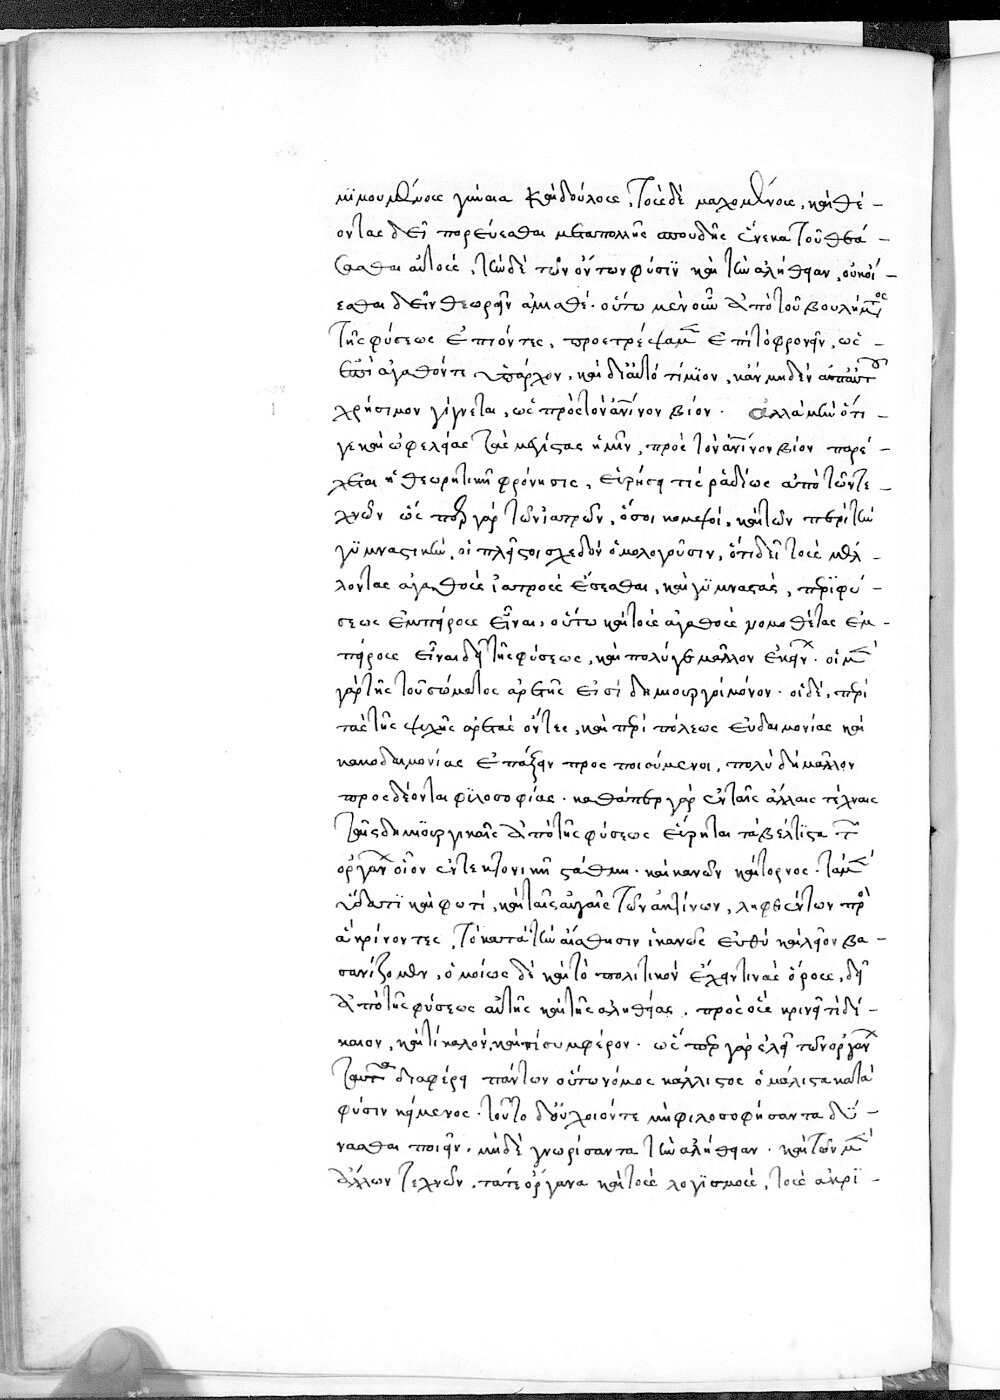 μϊμουμένους γύναια καὶ δούλους, τοὺς δὲ μαχομένους, καὶ θέ-
οντας δεῖ πορεύεσθαι μετὰ πολλῆς σπουδῆς ἕνεκα τοῦ θεά-
σασθαι αὐτοὺς, τὴν δὲ τῶν ὄντων φύσϊν καὶ τὴν ἀλήθειαν, οὐκ οἴ-
εσθαι δεῖν θεωρεῖν ἀμισθί. οὕτω μὲν οὖν ἀπὸ τοῦ βουλήματος
τῆς φύσεως ἐπιόντες, προετρέψαμεν ἐπὶ τὸ φρονεῖν, ὡς
ἐπὶ ἀγαθόν τι ὑπάρχον, καὶ δι' αὐτὸ τίμϊον, κἂν μηδὲν ἀπ' αὐτοῦ
χρήσιμον γίγνεται, ὡς πρὸς τὸν ἀνίνον βίον. ἀλλὰ μὴν ὅτι
γε καὶ ὠφελείας τὰς μεγίστας ἡμῖν, πρὸς τὸν ἀνίνον βίον παρέ-
χεται ἡ θεωρητικὴ φρόνησις, εὑρήσει τις ῥαδίως ἀπὸ τῶν τε-
χνῶν ὥσπερ γὰρ τῶν ἰατρῶν, ὅσοι κομψοί, καὶ τῶν περὶ τὴν
γϋμναστικὴν, οἱ πλεῖστοι σχεδὸν ὁμολογοῦσιν, ὅτι δεῖ τοὺς μέλ-
λοντας ἀγαθοὺς ἰατροὺς ἔσεσθαι, καὶ γϋμναστὰς, περὶ φύ-
σεως ἐμπείρους εἶναι, οὕτω καὶ τοὺς ἀγαθοὺς νομοθέτας ἐμ-
πείρους εἶναι δεῖ τῆς φύσεως, καὶ πολύ γε μᾶλλον ἐκείνων. οἱ μὲν
γὰρ τῆς τοῦ σώματος ἀρετῆς εἰσὶ δημιουργοὶ μόνον. οἱ δὲ, περὶ
τὰς τῆς ψυχῆς ἀρετὰς ὄντες, καὶ περὶ πόλεως εὐδαιμονίας καὶ
κακοδαιμονίας ἐπαΐξειν προσποιούμενοι, πολὺ δὴ μᾶλλον
προσδέονται φϊλοσοφίας. καθάπερ γὰρ ἐν ταῖς ἄλλαις τέχναις
ταῖς δημϊουργικαῖς ἀπὸ τῆς φύσεως εὕρηται τὰ βέλτϊστα τῶν
ὀργάνων οἷον ἐν τεκτονικῇ στάθμη. καὶ κανὼν καὶ τόρνος. τὰ μὲν
ὕδατϊ καὶ φωτί, καὶ ταῖς αὐγαῖς τῶν ἀκτίνων, ληφθέντων πρὸς
ἃ κρίνοντες, τὸ κατὰ τὴν αἴσθησιν ἱκανῶς εὐθὺ καὶ λεῖον βα-
σανίζομεν, ὁμοίως δὲ καὶ τὸ πολιτικὸν ἔχειν τινὰς ὅρους, δεῖ
ἀπὸ τῆς φύσεως αὐτῆς καὶ τῆς ἀληθείας. πρὸς οὓς κρινεῖ τί δί-
καιον, καὶ τί καλὸν, καὶ τί συμφέρον. ὥσπερ γὰρ ἐκεῖ τῶν ὀργάνων
ταῦτα διαφέρει πάντων οὕτω νόμος κάλλιστος ὁ μάλιστα κατὰ
φύσιν κείμενος. τοῦτο δ' οὐχ οἷόν τε μὴ φιλοσοφήσαντα δϋ-
νασθαι ποιεῖν. μηδὲ γνωρίσαντα τὴν ἀλήθειαν. καὶ τῶν μὲν
ἄλλων τεχνῶν, τά τε ὄργανα καὶ τοὺς λογϊσμοὺς, τοὺς ἀκρϊ-